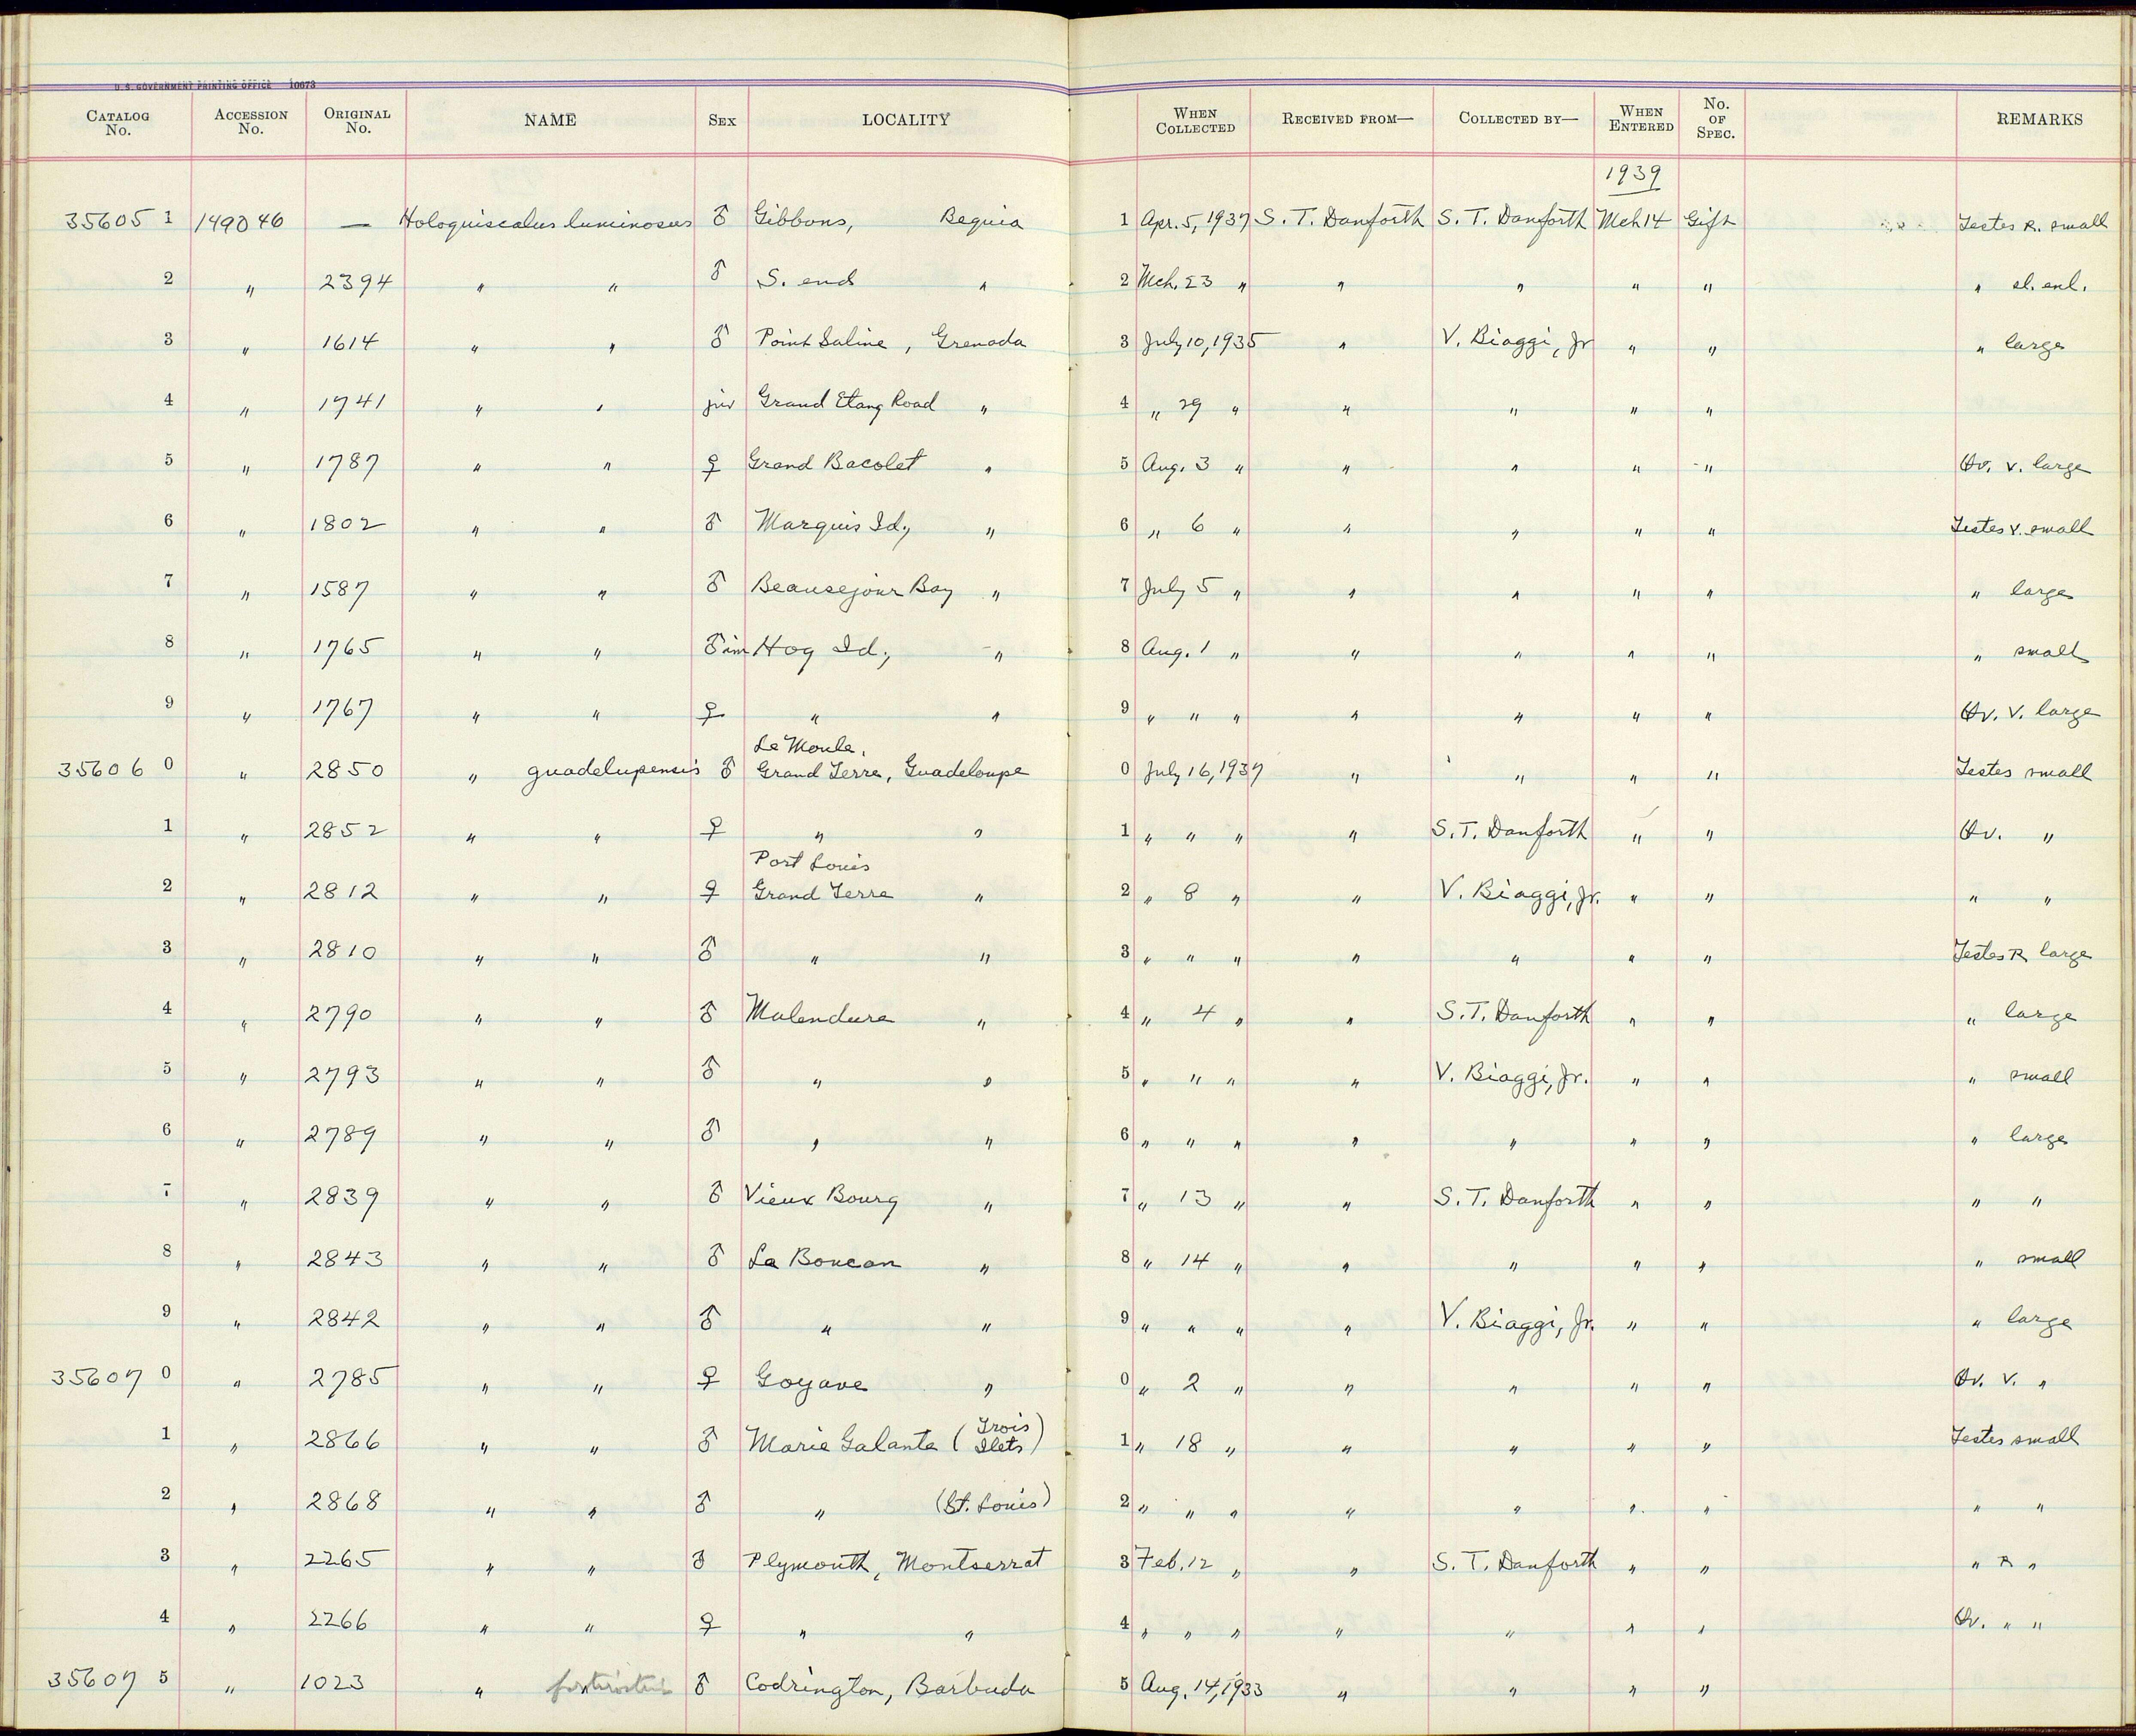 U. S. GOVERNMENT PRINTING OFFICE 10673
CATALOG No. ACCESSION No. ORIGINAL No. NAME SEX LOCALITY WHEN COLLECTED RECEIVED FROM— COLLECTED BY— WHEN ENTERED No. OF SPEC. REMARKS
1939
35605 1 149046 — Holoquiscalus luminosus ♂ Gibbons, Bequia 1 Apr. 5, 1937 S. T. Danforth S. T. Danforth Mch 14 Gift Testes R. small
2 " 2394 " " ♂ S. end " 2 Mch. 23 " " " " " " sl. enl.
3 " 1614 " " ♂ Point Saline, Grenada 3 July 10, 1935 " V. Biaggi, Jr " " " large
4 " 1741 " " juv Grand Etang Road " 4 " 29 " " " " "
5 " 1787 " " ♀ Grand Bacolet " 5 Aug. 3 " " " " " Ov. v. large
6 " 1802 " " ♂ Marquis Id., " 6 " 6 " " " " " Testes v. small
7 " 1587 " " ♂ Beausejour Bay " 7 July 5 " " " " " " large
8 " 1765 " " ♂ im Hog Id., " 8 Aug. 1 " " " " " " small
9 " 1767 " " ♀ " " 9 " " " " " " " Ov. V. large
Le Moule,
35606 0 " 2850 " guadelupensis ♂ Grand Terre, Guadeloupe 0 July 16, 1937 " " " " Testes small
1 " 2852 " " ♀ " " 1 " " " " S. T. Danforth " " Ov. "
Port Louis
2 " 2812 " " ♀ Grand Terre " 2 " 8 " " V. Biaggi, Jr. " " " "
3 " 2810 " " ♂ " " 3 " " " " " " " Testes R large
4 " 2790 " " ♂ Malendure " 4 " 4 " " S. T. Danforth " " " large
5 " 2793 " " ♂ " " 5 " " " " V. Biaggi, Jr. " " " small
6 " 2789 " " ♂ " " 6 " " " " " " " " large
7 " 2839 " " ♂ Vieux Bourg " 7 " 13 " " S. T. Danforth " " " "
8 " 2843 " " ♂ La Boucan " 8 " 14 " " " " " " small
9 " 2842 " " ♂ " " 9 " " " " V. Biaggi, Jr. " " " large
35607 0 " 2785 " " ♀ Goyave " 0 " 2 " " " " " Ov. V. "
1 " 2866 " " ♂ Marie Galante (Trois Ilets) 1 " 18 " " " " " Testes small
2 " 2868 " " ♂ " (St. Louis) 2 " " " " " " " " "
3 " 2265 " " ♂ Plymouth, Montserrat 3 Feb. 12 " " S. T. Danforth " " " R "
4 " 2266 " " ♀ " " 4 " " " " " " " Ov. " "
35607 5 " 1023 " fortirostris ♂ Codrington, Barbuda 5 Aug. 14, 1933 " " " "